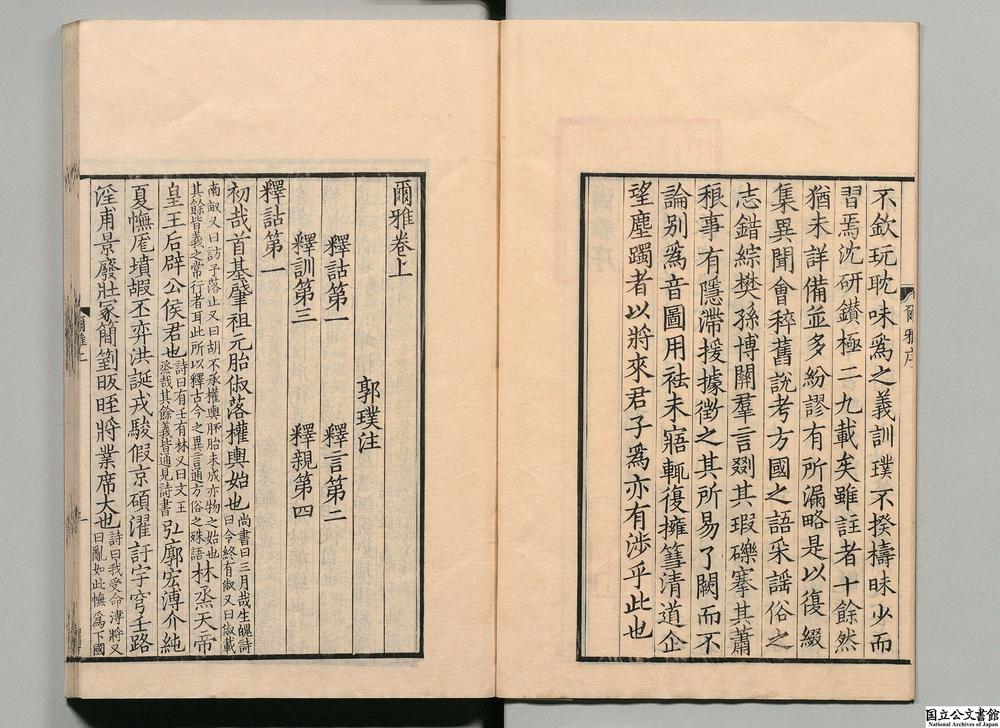 不欽玩耽味爲之義訓璞不揆檮昧少而
習焉沈研鑚極二九載矣雖註者十餘然
猶未詳備並多紛謬有所漏略是以復綴
集異聞會稡舊說考方國之語采謡俗之
志錯綜樊孫博關羣言剟其瑕礫搴其蕭
稂事有隱滯援據徵之其所易了闕而不
論别爲音圖用祛未寤輒復擁篲清道企
望塵躅者以將來君子爲亦有涉乎此也
爾雅序
爾雅卷上
郭璞注
釋詁第一 釋言第二
釋訓第三 釋親第四
釋詁第一
初哉首基肇祖元胎俶落權輿始也尚書曰三月哉生魄詩曰令終有俶又曰俶載
南畝又曰訪予落止又曰胡不承權輿胚胎未成亦物之始也其餘皆義之常行者耳此所以釋古今之異言通方俗之殊語林烝天帝
皇王后辟公侯君也詩曰有壬有林又曰文王烝哉其餘義皆通見詩書弘廓宏溥介純
夏幠厖墳嘏丕弈洪誕戎駿假京碩濯訏宇穹壬路
淫甫景廢壯冢簡箌昄晊將業席大也詩曰我受命溥將又曰亂如此幠爲下國
爾雅上
国立公文書館
National Archives of Japan